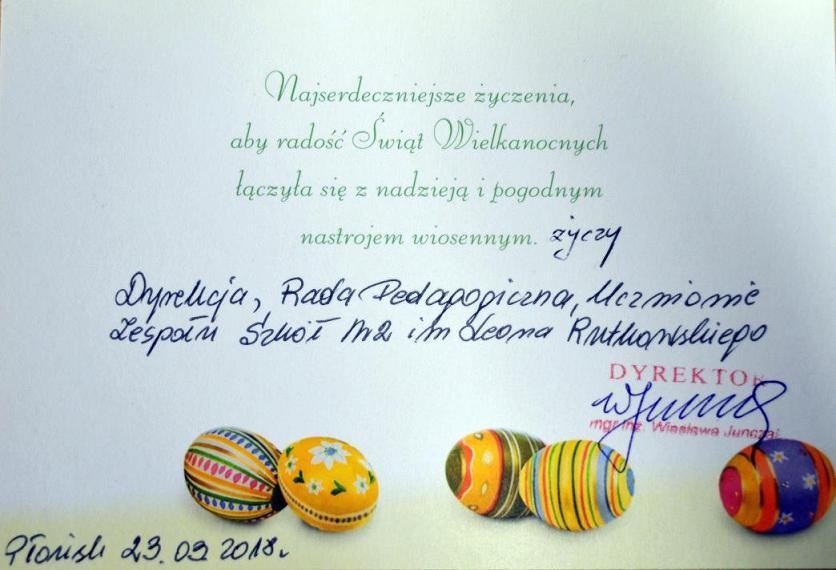 Najserdeczniejsze życzenia,
aby radość Świąt Wielkanocnych
łączyła się z nadzieją i pogodnym
nastrojem wiosennym. życzy
Dyrekcja, Rada Pedagogiczna, Uczniowie
Zespołu Szkół Nr2 im Leona Rutkowskiego
DYREKTOR
mgr inż. Wiesława Junczai
Płońsk 23.03.2018r